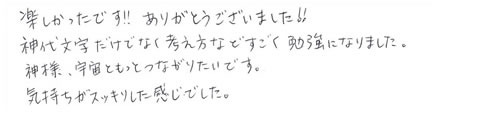 楽しかったです!! ありがとうございました!!
神代文字だけでなく考え方などすごく勉強になりました。
神様、宇宙ともっとつながりたいです。
気持ちがスッキリした感じでした。